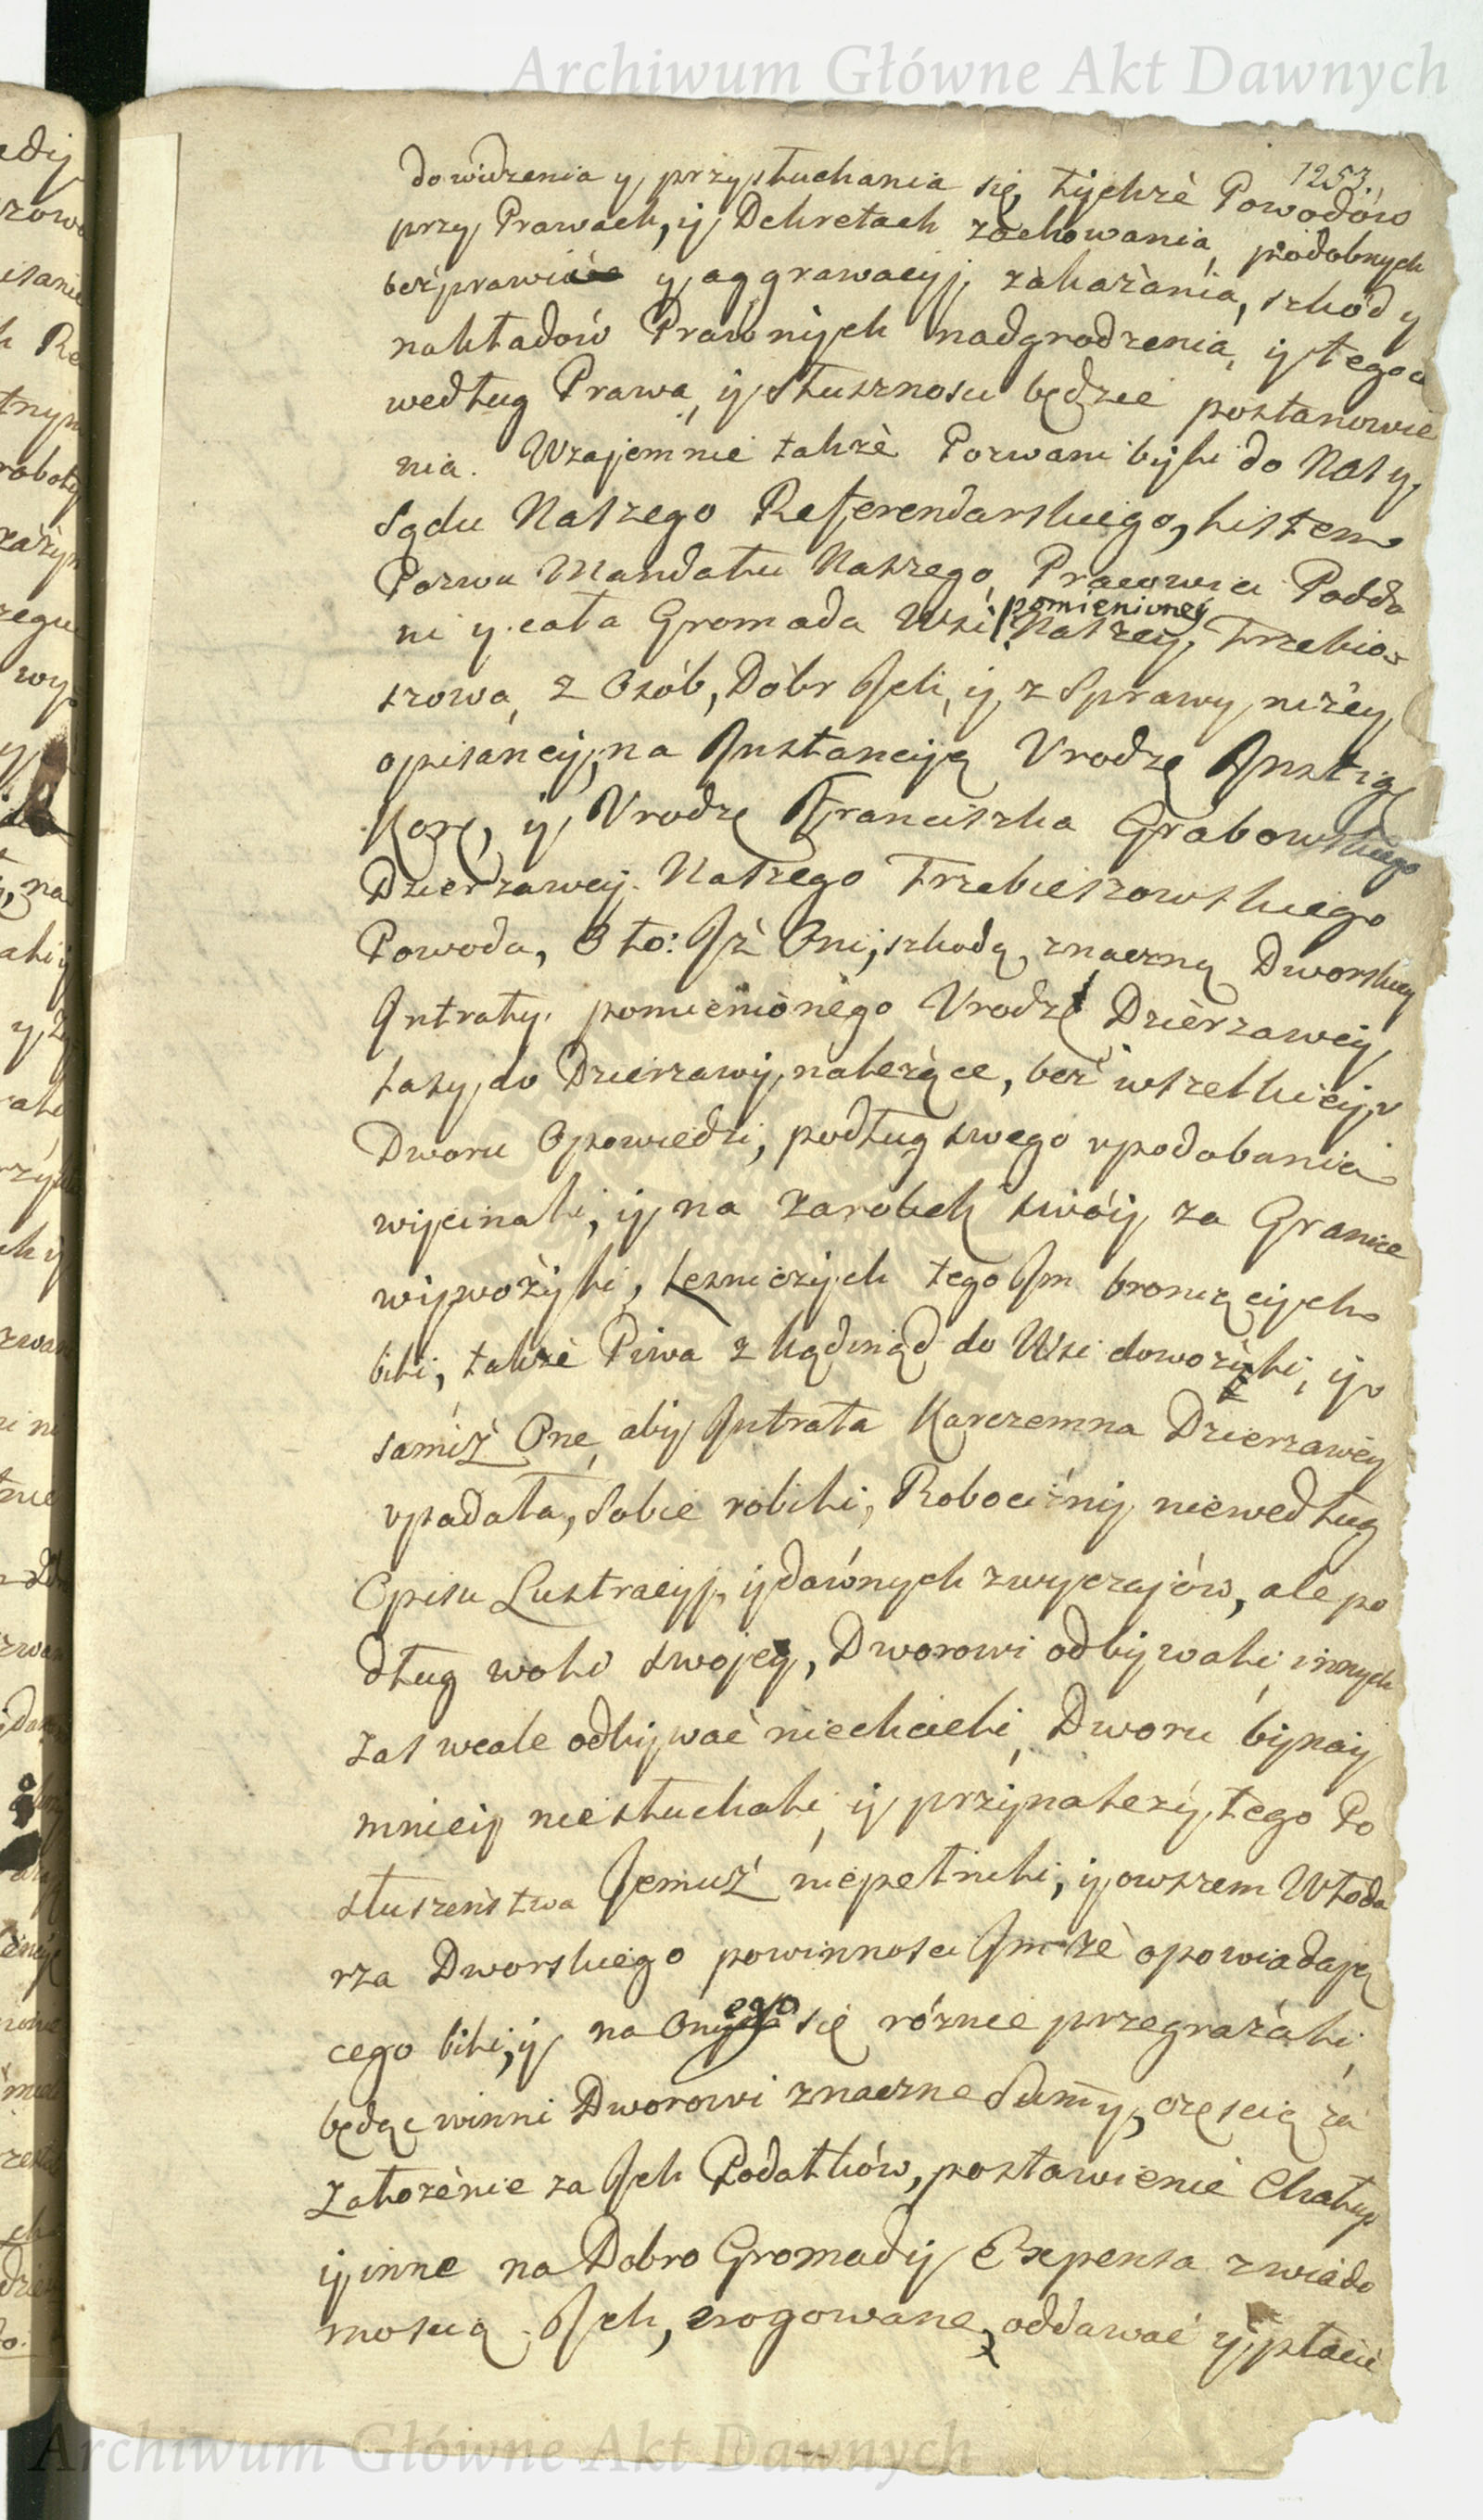 Archiwum Główne Akt Dawnych
1253.
do widzenia y przysłuchania się, tychże Powodów
przy Prawach, y Dekretach zachowania, podobnych
bezprawiów y aggrawacyj, zakazania, szkód y
nakładów Prawnych nadgrodzenia, y tego co
według Prawa, y Słusznosci będzie postanowie
nia. Wzajemnie także Pozwani byli do Nas y
Sądu Naszego Referendarskiego, listem
Pozwu Mandatu Naszego, Pracowici Podda
ni y cała Gromada Wsi pomienioney Naszey, Trzebie
szowa, z Osób, Dóbr Ich, y z Sprawy niżey
opisaney, na Instancyą Vrodzę Instig
Korę, y Vrodzę Franciszka Grabowskiego
Dzierzawcy Naszego Trzebieszowskiego
Powoda, O to: Iż Oni, szkodą znaczną Dworskiey
Intraty pomienionego Vrodzę Dzierzawcy,
Lasy, do Dzierzawy, nalezące, bez wszelkiey v
Dworu Opowiedzi, podług swego vpodobania
wycinali, y na zarobek swóy za Granice
wywozyli, Leśniczych tego Im broniących
bili, także Piwa z kądinąd do Wsi dowozili, y
samiż One, aby Intrata Karczemna Dzierzawcy
vpadała, Sobie robili, Robocizny niewedług
Opisu Lustracyj, y dawnych zwyczajów, ale po
dług woli swojey, Dworowi odbywali, innych
zas wcale odbywać niechcieli, Dworu bynay
mniey niesłuchali, y przynależytego Po
słuszeństwa Jemuż niepełnili, y owszem Włoda
rza Dworskiego powinnosci Im że opowiadają
cego bili, y na Onego się różnie przegrażali,
będąc winni Dworowi znaczne Summy, częscią za
Założenie za Ich Podatków, postawienie Chałup
y inne na Dobro Gromady Expensa z wiado
moscią Ich, erogowane, oddawać y płacić
Archiwum Główne Akt Dawnych